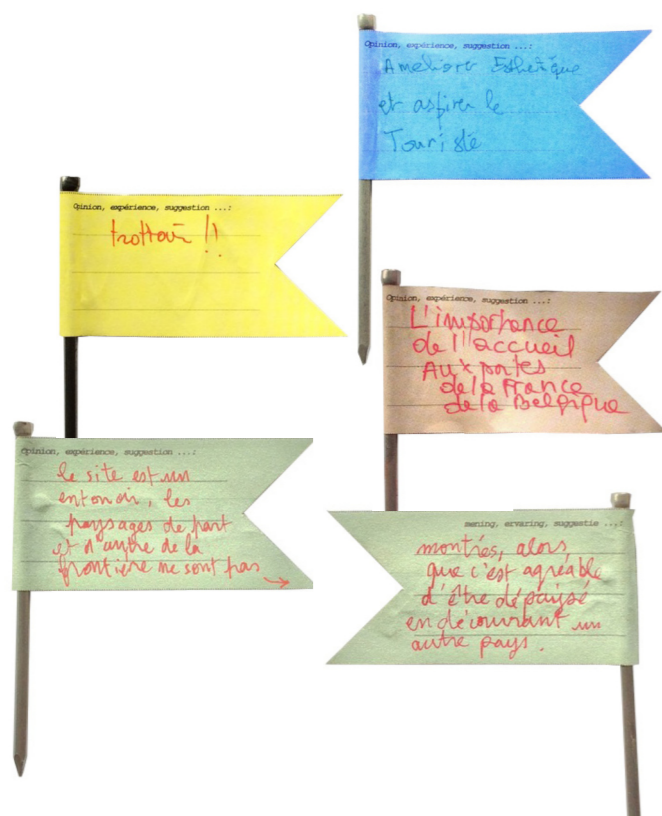 Opinion, expérience, suggestion ...:
Améliorer Esthétique
et aspirer le
Touriste
Opinion, expérience, suggestion ...:
trottoir !!
Opinion, expérience, suggestion ...:
L'importance
de l'accueil
Aux portes
de la France
de la Belgique
Opinion, expérience, suggestion ...:
le site est un
entonnoir, les
paysages de part
et d'autre de la
frontière ne sont pas →
mening, ervaring, suggestie ...:
montrés, alors
que c'est agréable
d'être dépaysé
en découvrant un
autre pays.